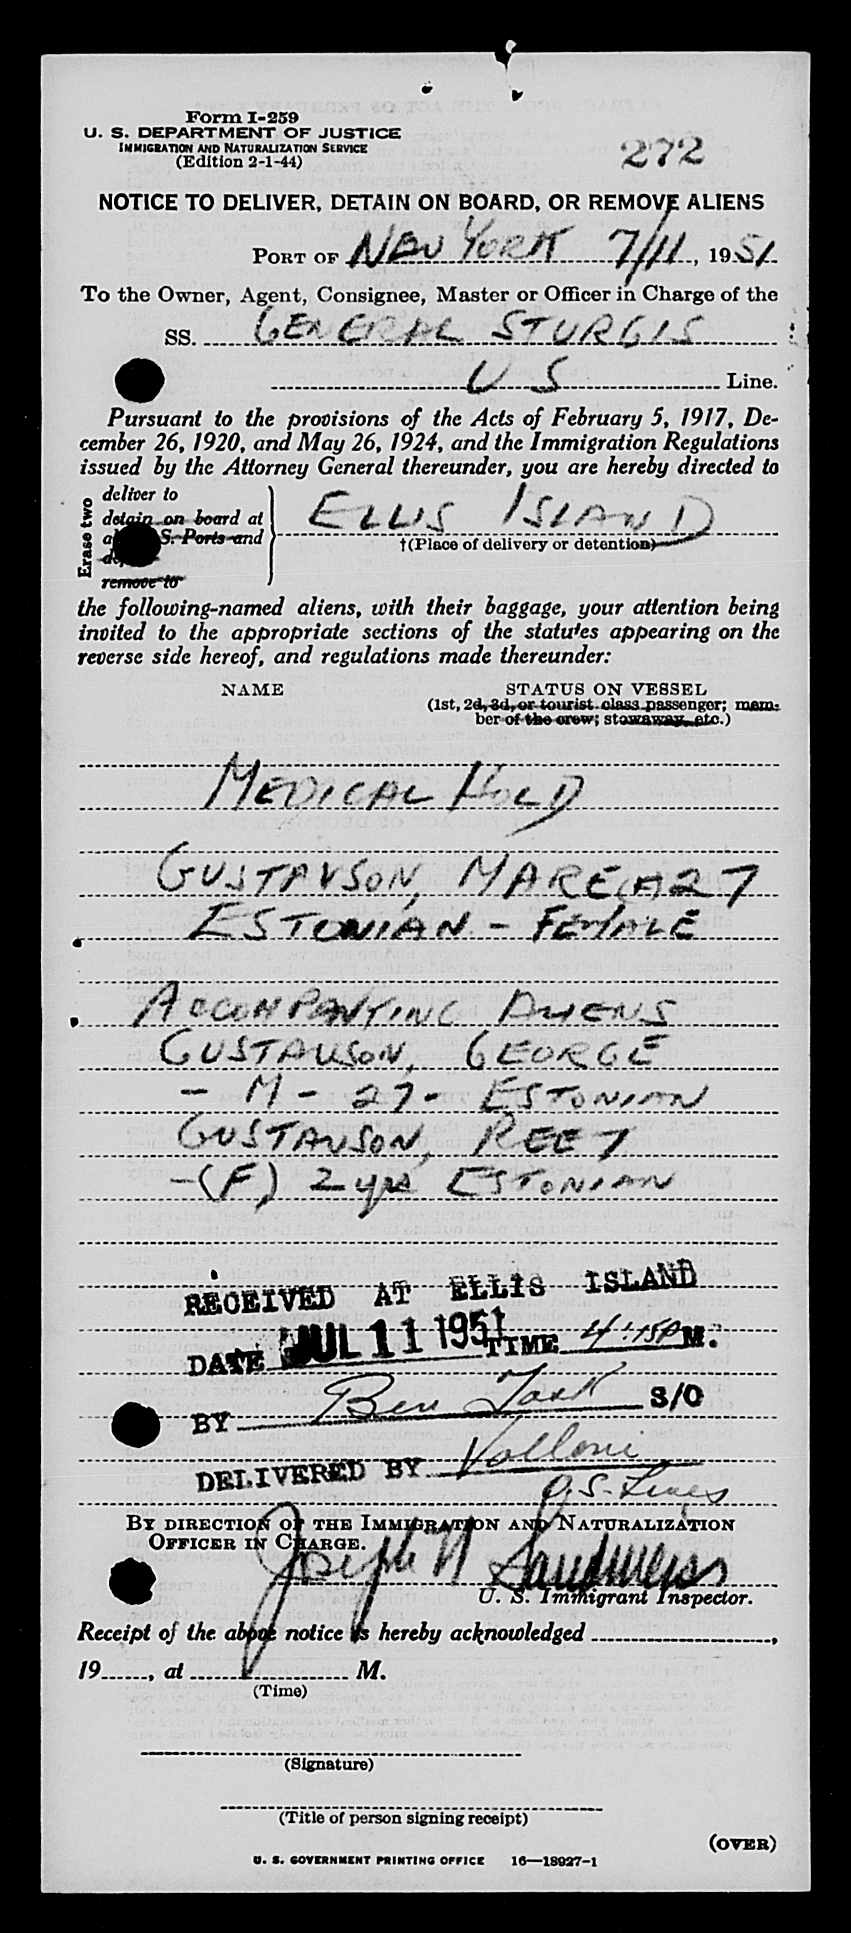 Form I-259
U. S. DEPARTMENT OF JUSTICE
IMMIGRATION AND NATURALIZATION SERVICE
(Edition 2-1-44)
272
NOTICE TO DELIVER, DETAIN ON BOARD, OR REMOVE ALIENS
PORT OF NEW YORK 7/11, 1951
To the Owner, Agent, Consignee, Master or Officer in Charge of the
SS. GENERAL STURGIS
U S Line.
Pursuant to the provisions of the Acts of February 5, 1917, De-
cember 26, 1920, and May 26, 1924, and the Immigration Regulations
issued by the Attorney General thereunder, you are hereby directed to
Erase two
deliver to
detain on board at
S. Ports and
remove to
ELLIS ISLAND
†(Place of delivery or detention)
the following-named aliens, with their baggage, your attention being
invited to the appropriate sections of the statutes appearing on the
reverse side hereof, and regulations made thereunder:
NAME STATUS ON VESSEL
(1st, 2d, 3d, or tourist class passenger; mem-
ber of the crew; stowaway, etc.)
MEDICAL HOLD
GUSTAVSON, MARE 27
ESTONIAN - FEMALE
ACCOMPANYING ALIENS
GUSTAVSON, GEORGE
- M - 27 - ESTONIAN
GUSTAVSON, REET
- (F) 2 yrs ESTONIAN
RECEIVED AT ELLIS ISLAND
DATE JUL 11 1951 TIME 4:15 P M.
BY Ben S/O
DELIVERED BY Valloni
U.S. Lines
BY DIRECTION OF THE IMMIGRATION AND NATURALIZATION
OFFICER IN CHARGE.
Joseph N
U. S. Immigrant Inspector.
Receipt of the above notice is hereby acknowledged ,
19 , at M.
(Time)
(Signature)
(Title of person signing receipt)
(OVER)
U. S. GOVERNMENT PRINTING OFFICE 16—18927-1